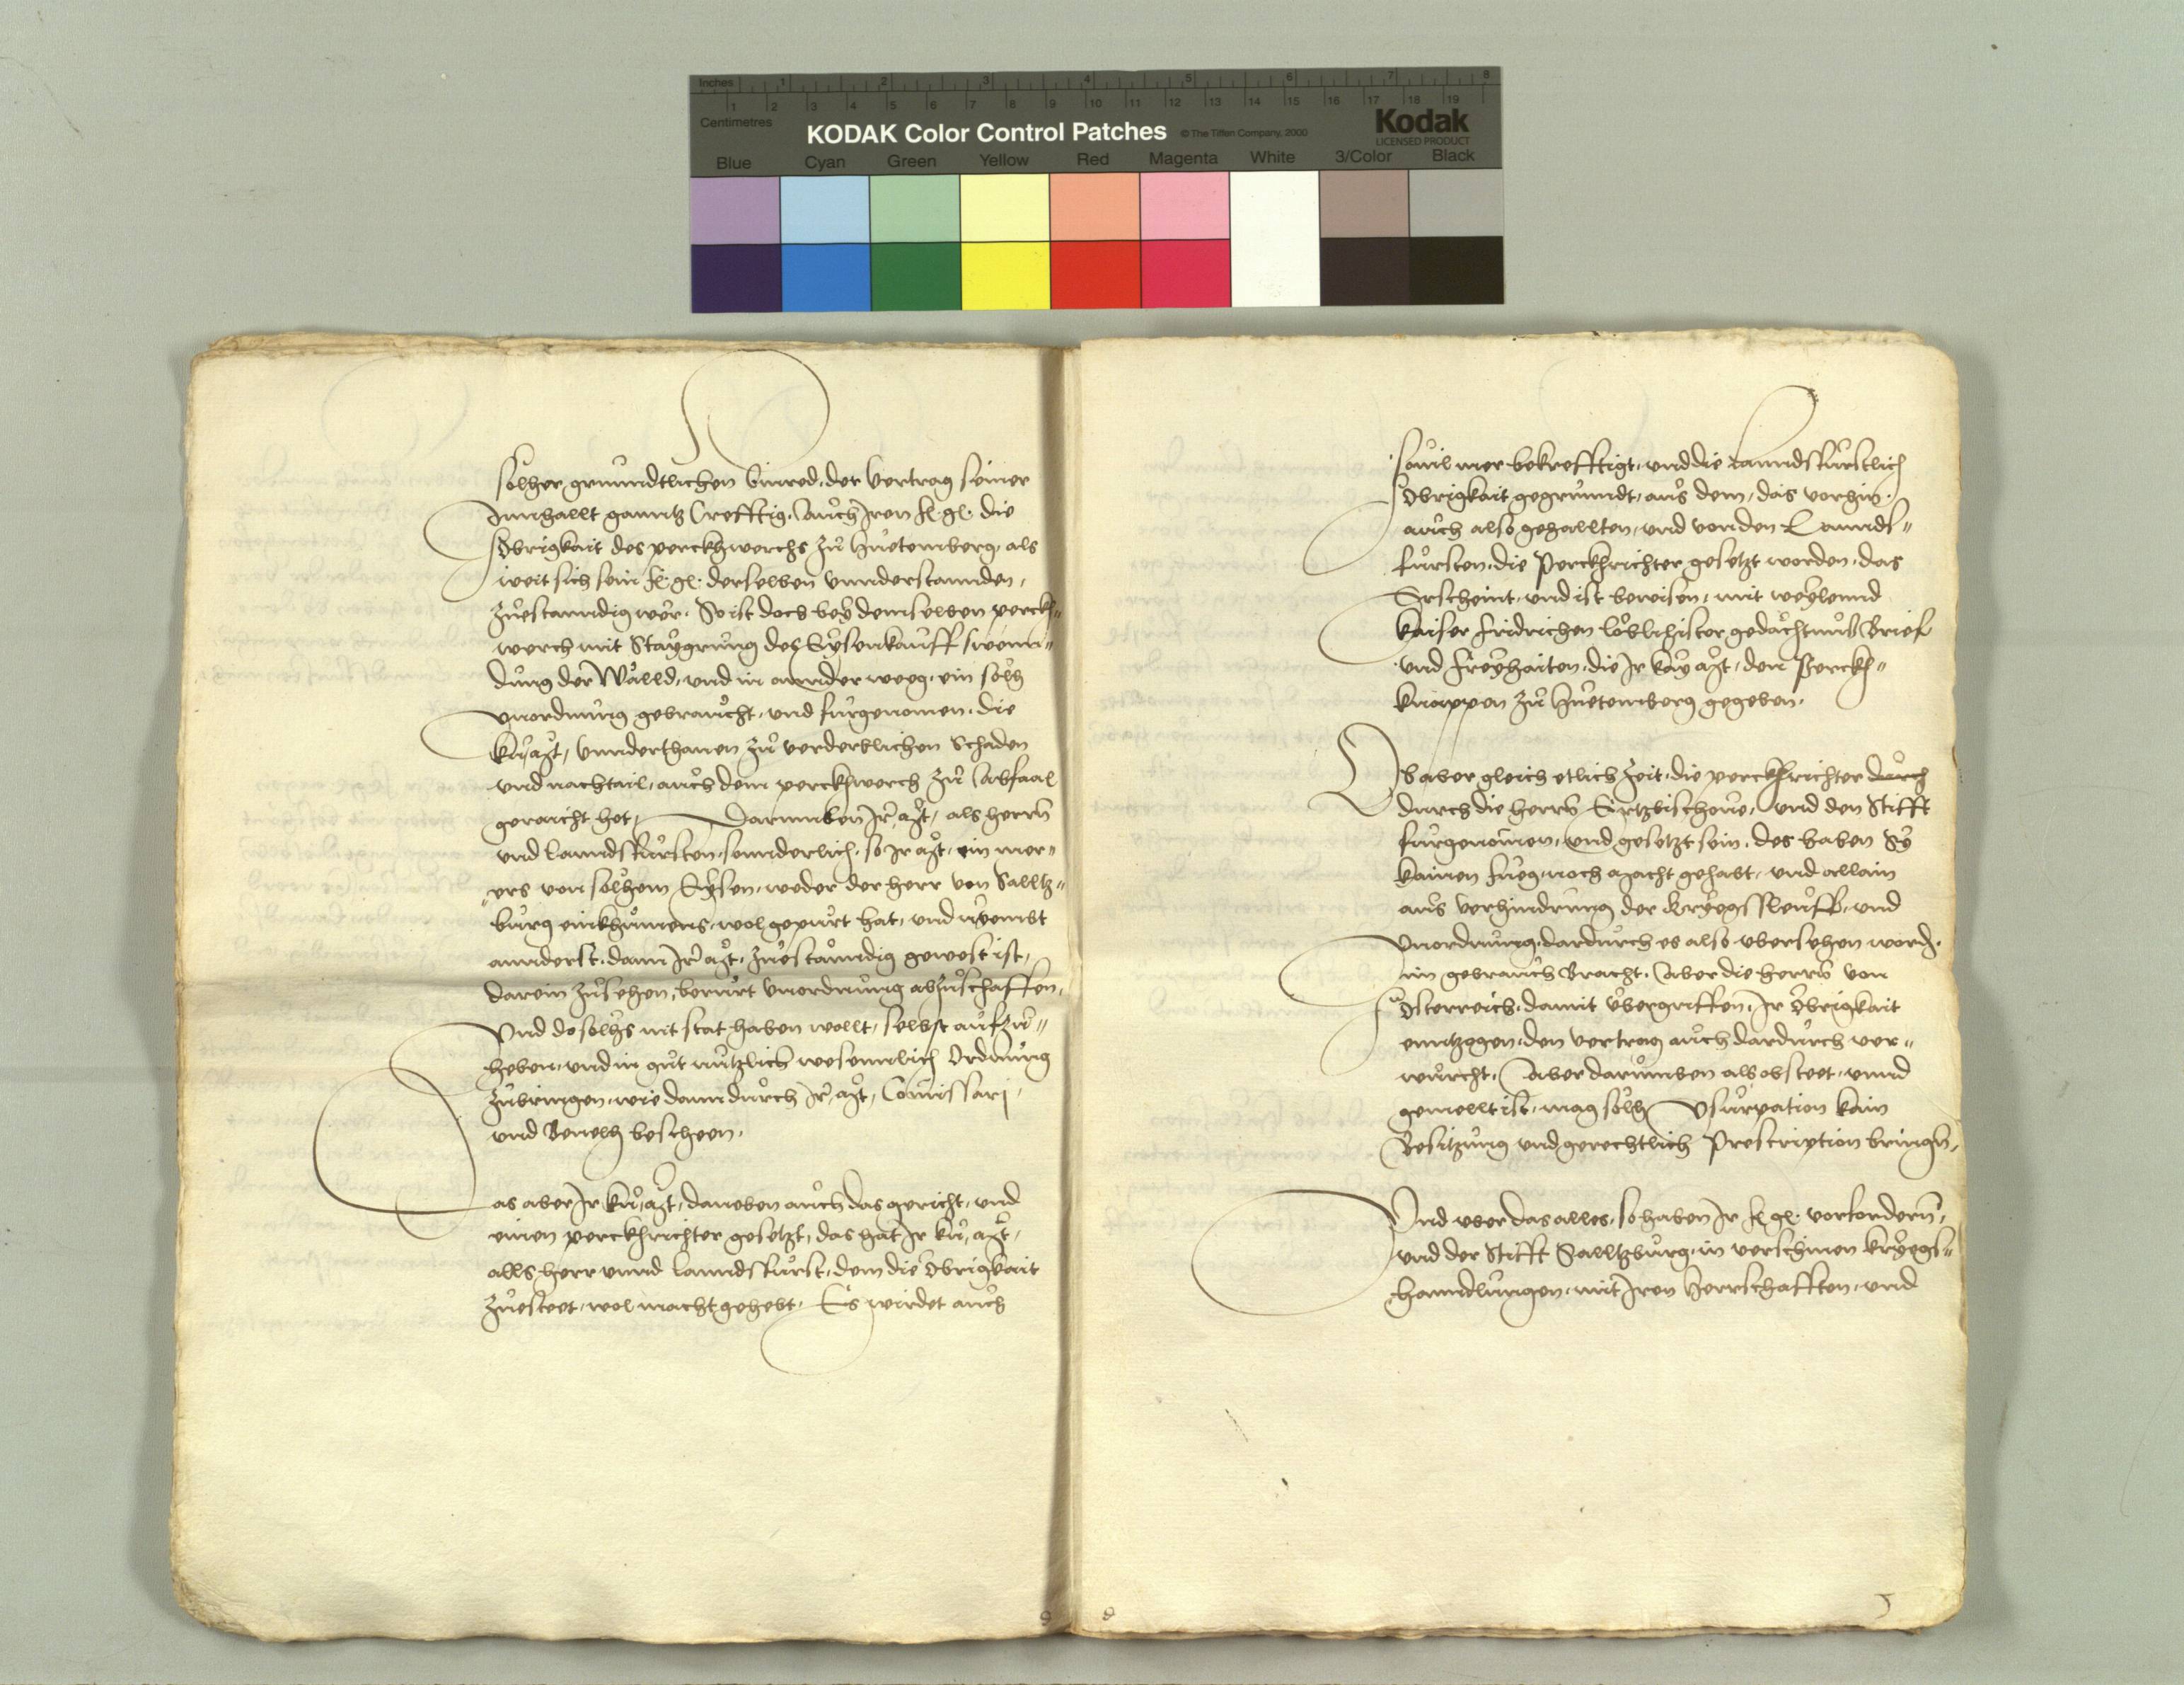 Inches 1 2 3 4 5 6 7 8
1 2 3 4 5 6 7 8 9 10 11 12 13 14 15 16 17 18 19
Centimetres
KODAK Color Control Patches © The Tiffen Company, 2000 Kodak
LICENSED PRODUCT
Blue Cyan Green Yellow Red Magenta White 3/Color Black
solher grundtlichen Einred, der Vertrag seiner
Innhallt ganntz Crefftig, Auch Iren fl. gl. die
Obrigkait des perckhwerchs zu Huetemberg, als
weit sich sein fl. gl. derselben unnderstannden,
zuestanndig wer. So ist doch bey demselben perckh-
werch mit Staygrung des Eysenkauff swenn-
dung der Wälld, und in annder weeg, ein solh
Unordnung gebraucht, und furgenomen, die
Kü. Mt. Unnderthanen zu verderblichen Schaden
und nachtail, auch dem perckhwerch zu Abfaal
geraicht hat, Darumben Ir Mt. als herrn
und Lanndsfürsten, sonnderlich, so Ir Mt. ein mer-
ers von solhem Eysen, weder der herr von Salltz-
burg einkhumens, wol gepurt hat, und nyembt
annderst, dann Ir Mt. zuestanndig gewest ist,
darein zusehen, berürt Unordnung abzuschaffen,
Und do solhs nit stat haben wollt, selbst aufzu-
heben, und in gut nutzlich wesennlich Ordnung
zubringen, wie dann durch Ir Mt. Comissari,
und Bevelh beschehen.
Das aber Ir Kü. Mt. daneben auch das gericht, und
einen perckhrichter gesetzt, das hat Ir Kü. Mt.
alls herr unnd Lanndsfurst, dem die Obrigkait
zuesteet, wol macht gehebt. Es wirdet auch
sovil mer bekrefftigt, und die Lanndsfurstlich
Obrigkait gegrundt, aus dem, das vorhin,
auch also gehallten, und von den Lannds-
fursten, die Perckhrichter gesetzt worden, das
Erscheint, und ist bewisen, mit weylennd
Kaiser Fridrichen loblichister gedachtnus Brief
und Freyhaiten, die Ir Kay. Mt. den Perckh-
knappen zu Huetemberg gegeben.
Ob aber gleich etlich Zeit, die perckhrichter durch
durch die herrn Ertzbischove, und den Stifft
furgenomen, und gesetzt sein, des haben Sy
kainen fueg, noch macht gehabt, und allain
aus Verhindrung der Kryegsleuff, und
Unordnung, dardurch es also ubersehen word.
in gebrauch Bracht, Aber die herrn von
Osterreich, damit ubergriffen, Ir Obrigkait
enntzogen, den vertrag auch dardurch ver-
würcht, Aber darumben als obsteet, unnd
gemellt ist, mag solh Usurpation kain
Besitzung und gerechtlich Prescription bringn,
Und uber das alles, so haben Ir fl. gl. vorfordern,
und der Stifft Salltzburg, in verschinen Kryegs-
hanndlungen, mit Iren Herrschafften, und
9
8
5